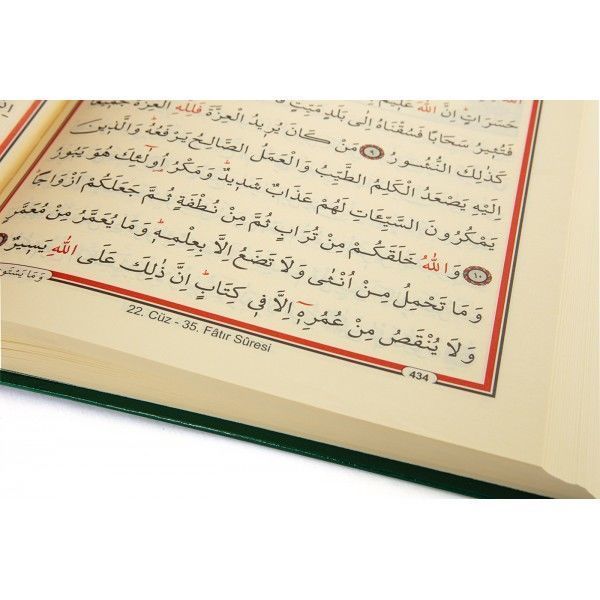 حَسَرَاتٍ اِنَّ اللّٰهَ عَلِيمٌ
فَتُثِيرُ سَحَابًا فَسُقْنَاهُ اِلٰى بَلَدٍ مَيِّتٍ
كَذٰلِكَ النُّشُورُ ٩ مَنْ كَانَ يُرِيدُ الْعِزَّةَ فَلِلّٰهِ الْعِزَّةُ جَمِيعًا
اِلَيْهِ يَصْعَدُ الْكَلِمُ الطَّيِّبُ وَالْعَمَلُ الصَّالِحُ يَرْفَعُهُ وَالَّذِينَ
يَمْكُرُونَ السَّيِّـَٔاتِ لَهُمْ عَذَابٌ شَدِيدٌ وَمَكْرُ اُو۬لٰٓئِكَ هُوَ يَبُورُ
١٠ وَاللّٰهُ خَلَقَكُمْ مِنْ تُرَابٍ ثُمَّ مِنْ نُطْفَةٍ ثُمَّ جَعَلَكُمْ اَزْوَاجًا
وَمَا تَحْمِلُ مِنْ اُنْثٰى وَلَا تَضَعُ اِلَّا بِعِلْمِهٖ وَمَا يُعَمَّرُ مِنْ مُعَمَّرٍ
وَلَا يُنْقَصُ مِنْ عُمُرِهٖٓ اِلَّا فِي كِتَابٍ اِنَّ ذٰلِكَ عَلَى اللّٰهِ يَسِيرٌ
وَمَا يَسْتَوِي
22. Cüz - 35. Fâtır Sûresi
434